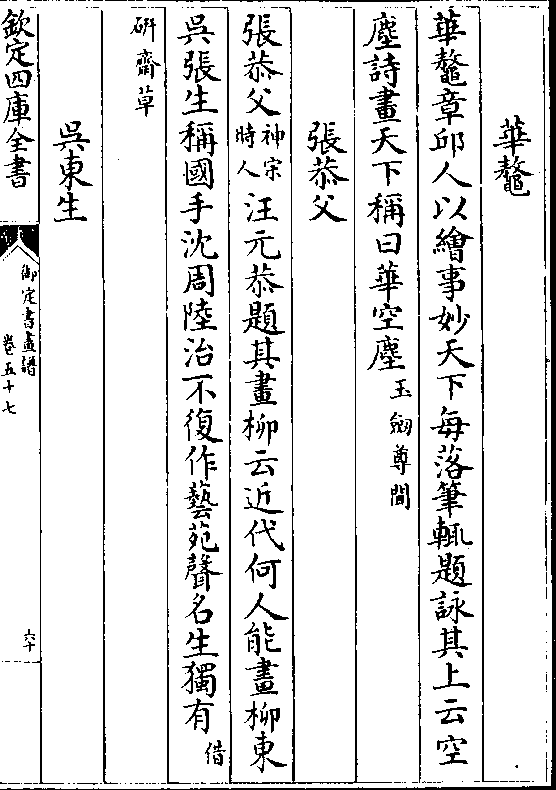 華鼇
華鼇章邱人以繪事妙天下每落筆輒題詠其上云空
塵詩畫天下稱曰華空塵玉劔尊聞
張恭父
張恭父神宗時人汪元恭題其畫柳云近代何人能畫柳東
吳張生稱國手沈周陸治不復作藝苑聲名生獨有借
硏齋草
吳東生
欽定四庫全書
御定書畫譜
卷五十七
六十